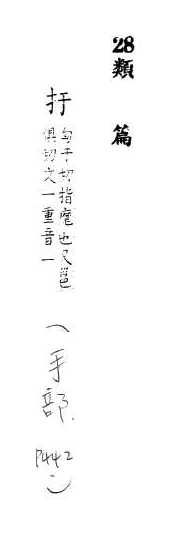 28 類篇
扜
匈于切指麾也又邕
俱切文一重音一
(手部. P442)